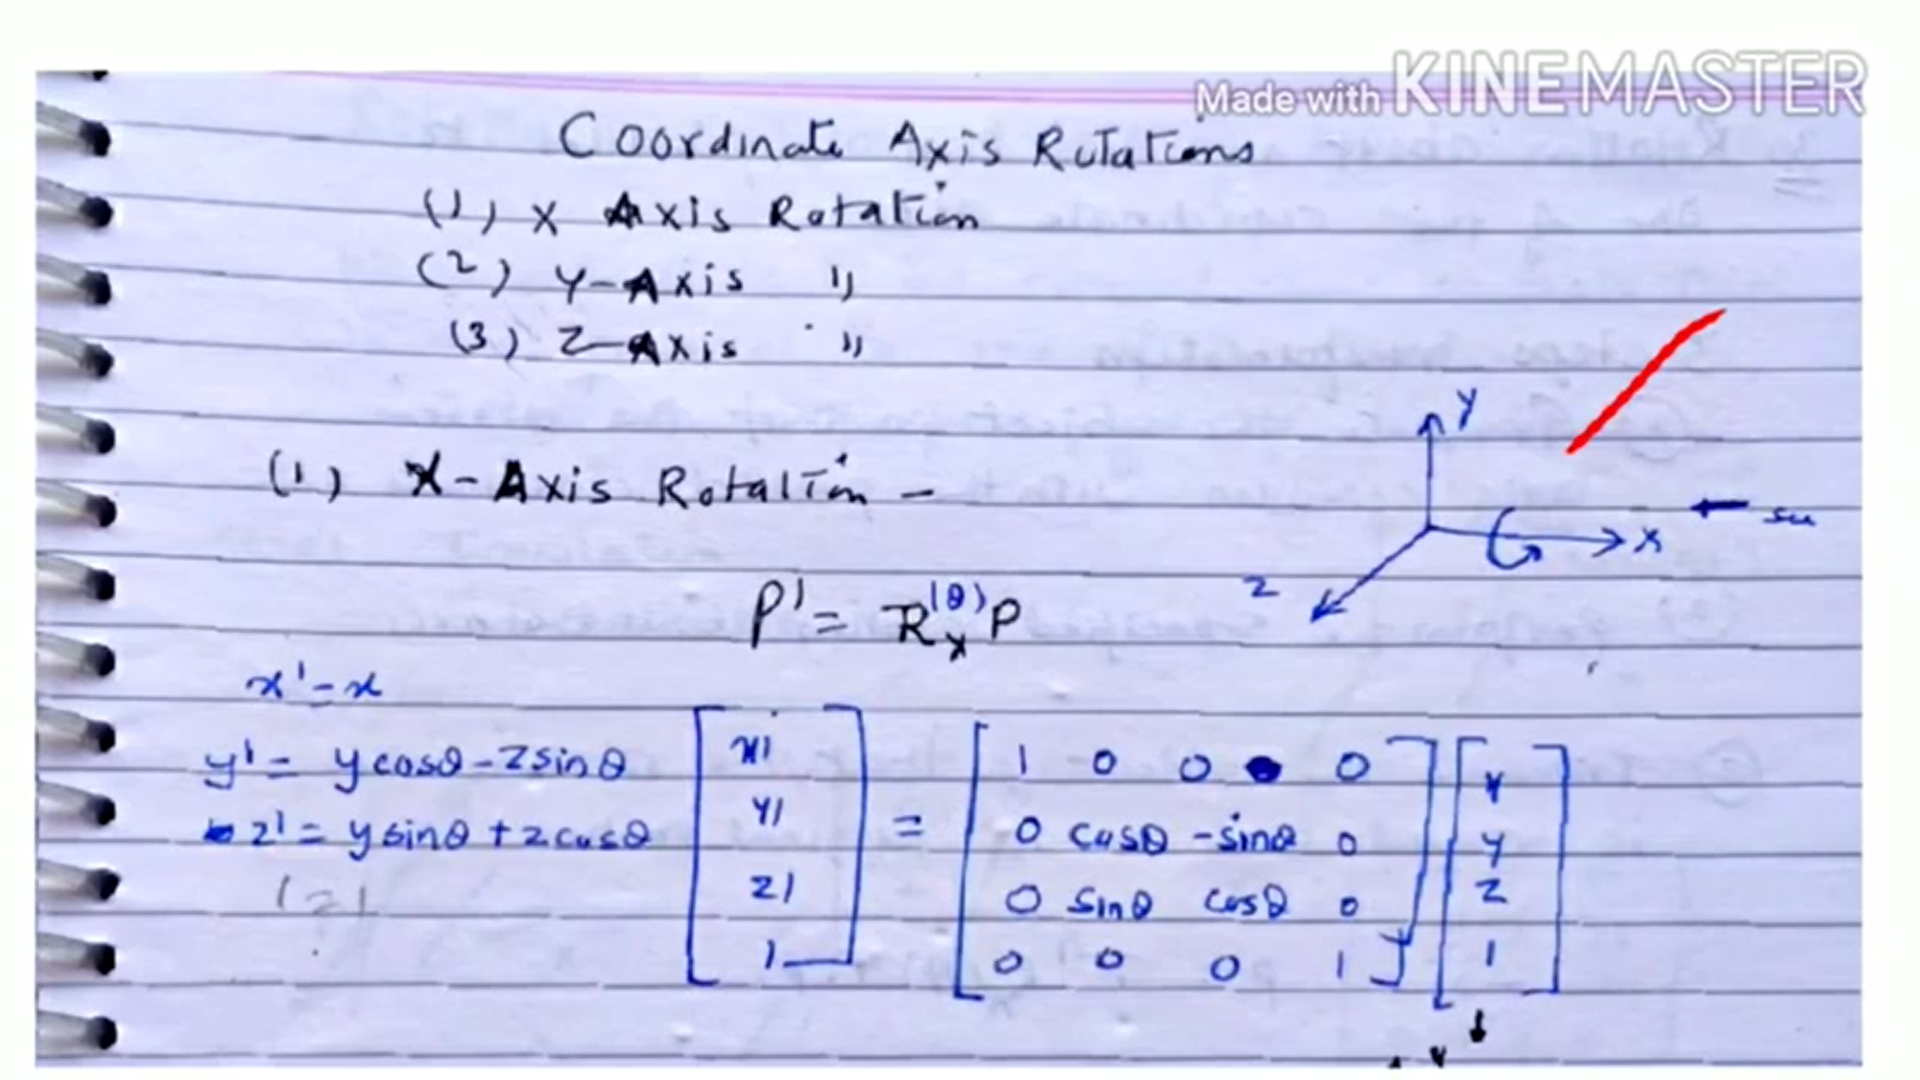 Made with KINEMASTER
Coordinate Axis Rotations
(1) X Axis Rotation
(2) Y-Axis "
(3) Z-Axis "
(1) X-Axis Rotation -
Y
X
Z
P' = Rx(θ) P
x' = x
y' = y cosθ - z sinθ
z' = y sinθ + z cosθ
[x' y' z' 1] = [1 0 0 0
0 cosθ -sinθ 0
0 sinθ cosθ 0
0 0 0 1] [x y z 1]